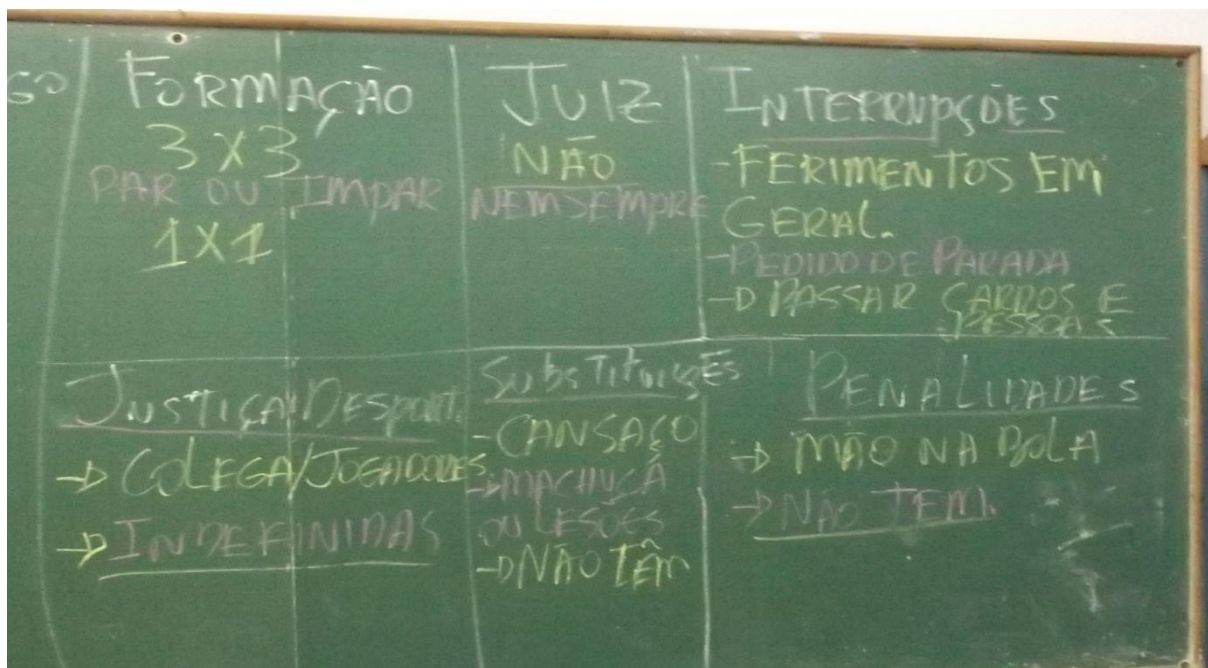 GO
FORMAÇÃO
3 X 3
PAR OU IMPAR
1X1
JUIZ
NÃO
NEM SEMPRE
INTERRUPÇÕES
- FERIMENTOS EM
GERAL.
- PEDIDO DE PARADA
→ PASSAR CARROS E
PESSOAS
JUSTIÇA DESPORT.
→ COLEGA/JOGADORES
→ INDEFINIDAS
SUBSTITUIÇÕES
- CANSAÇO
→ MACHUCA
OU LESÕES
→ NÃO TÊM
PENALIDADES
→ MÃO NA BOLA
→ NÃO TEM.